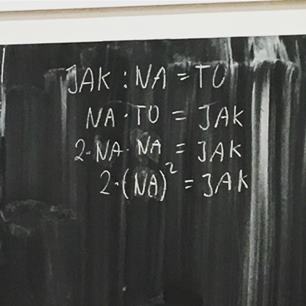 JAK : NA = TO
NA · TO = JAK
2·NA·NA = JAK
2·(NA)² = JAK